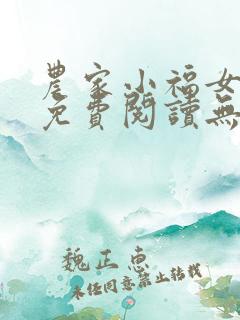 農家小福女
免費閱讀無
魏正惠
未经同意禁止转载